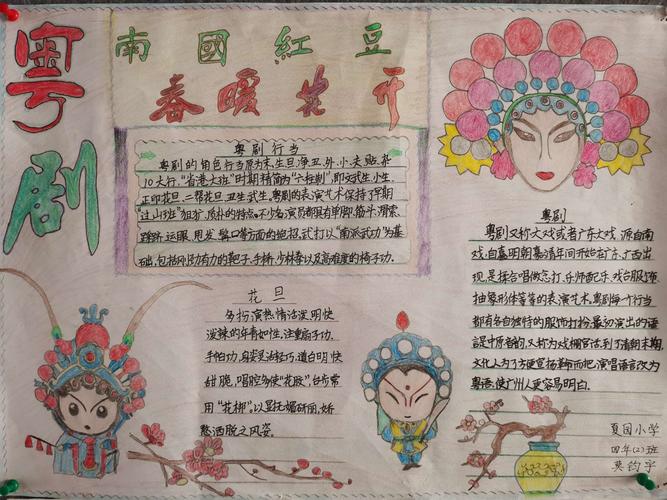 粤剧
南國紅豆
春暖花开
粤剧行当
粤剧的角色行当原为末、生、旦、净、丑、外、小、夫、贴、杂
10大行，"省港大班"时期精简为"六柱制"，即文武生、小生、
正印花旦、二帮花旦、丑生、武生。粤剧的表演艺术保持了早期
"过山班"粗犷、质朴的特点，不少名演员都具有单脚、筋斗、滑索、
踏跷、运眼、甩发、髯口等方面的绝招，武打以"南派武功"为基
础，包括刚劲有力的靶子、手桥、少林拳以及高难度的椅子功。
花旦
多扮演热情活泼、明快
泼辣的年青女性，注重扇子功、
手帕功，身姿灵活轻巧，道白明快
甜脆，唱腔多使"花腔"，台步常
用"花梆"，以显妩媚研丽、娇
憨洒脱之风姿。
粤剧
粤剧又称大戏或者广东大戏，源自南
戏，自嘉明朝嘉清年间开始在广、广西出
现，是揉合唱做念打、乐师配乐、戏台服饰、
抽象形体等等的表演艺术。粤剧每个行当
都有各自独特的服饰打扮。最初演出的语
言是中原音韵，又称为戏棚官话。到了清朝末期，
文化人为了方便宣扬革命而把演唱语言改为
粤语，使广州人更容易明白。
夏园小学
四年(2)班